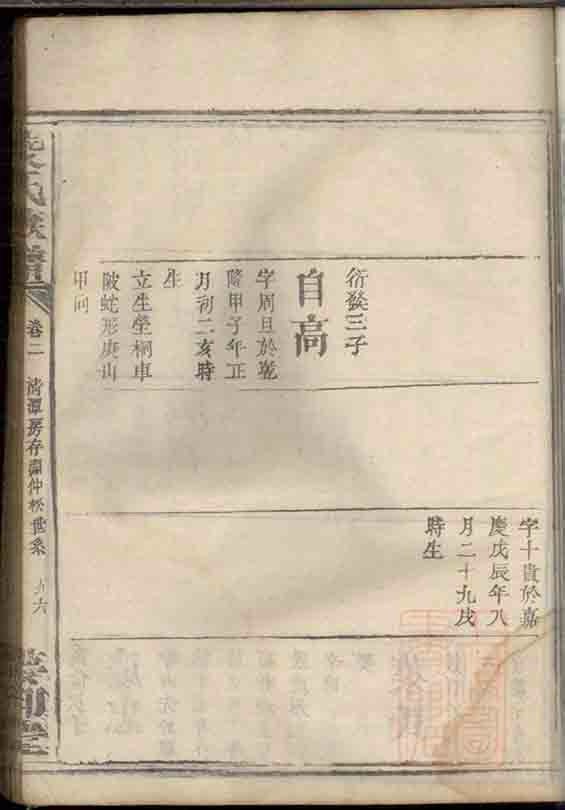 衍發三子
自高
字周旦於乾
隆甲子年正
月初二亥時
生
立生塋桐車
陂蛇形庚山
甲向
字十貴於嘉
慶戊辰年八
月二十九戌
時生
氏族譜
卷二
清潭房存蘭仲松世系
九六